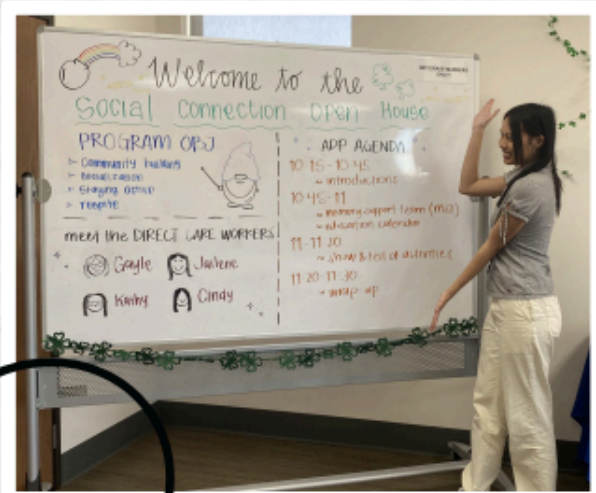 Welcome to the
Social Connection Open House
PROGRAM OBJ
- Community building
- Socialization
- Staying active
- respite
meet the DIRECT CARE WORKERS
Gayle
Kathy
Cindy
ADP AGENDA
10:15-10:45
introductions
10:45-11
memory support team
education calendar
11-11:20
show & tell of activities
11:20-11:30
wrap-up